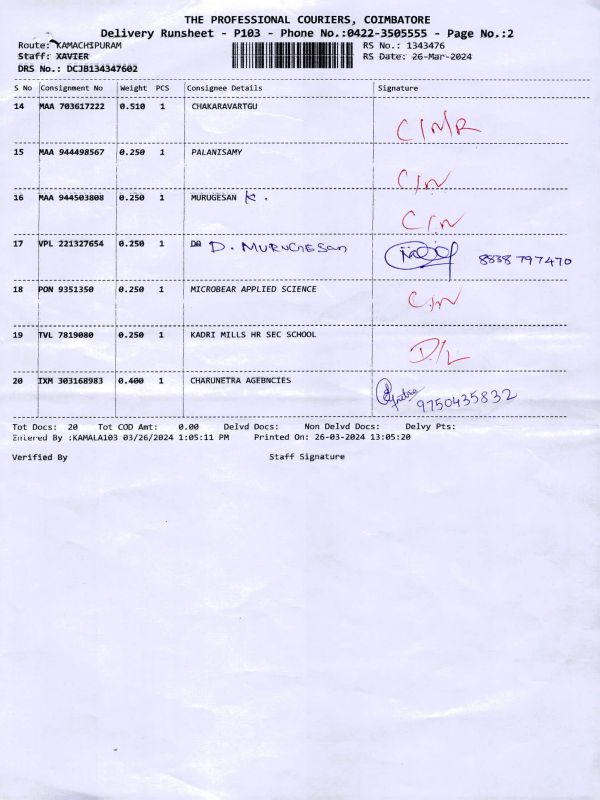 THE PROFESSIONAL COURIERS, COIMBATORE
Delivery Runsheet - P103 - Phone No.:0422-3505555 - Page No.:2
Route: KAMACHIPURAM RS No.: 1343476
Staff: XAVIER RS Date: 26-Mar-2024
DRS No.: DCJB134347602
S No Consignment No Weight PCS Consignee Details Signature
14 MAA 703617222 0.510 1 CHAKARAVARTGU
C/M/R
15 MAA 944498567 0.250 1 PALANISAMY
C/N
16 MAA 944503808 0.250 1 MURUGESAN K.
C/N
17 VPL 221327654 0.250 1 D. MURUGESan 8838 797470
18 PON 9351350 0.250 1 MICROBEAR APPLIED SCIENCE
C/N
19 TVL 7819080 0.250 1 KADRI MILLS HR SEC SCHOOL
D/L
20 IXM 303168983 0.400 1 CHARUNETRA AGEBNCIES
9750435832
Tot Docs: 20 Tot COD Amt: 0.00 Delvd Docs: Non Delvd Docs: Delvy Pts:
Entered By :KAMALA103 03/26/2024 1:05:11 PM Printed On: 26-03-2024 13:05:20
Verified By Staff Signature